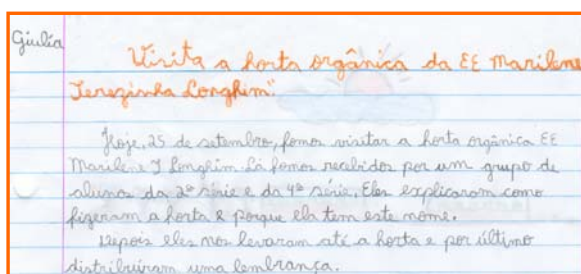 Giulia
Visita a horta orgânica da EE Marilene
Terezinha Longhim".
Hoje, 25 de setembro, fomos visitar a horta orgânica EE
Marilene T Longhim. Lá fomos recebidos por um grupo de
alunos da 2ª série e da 4ª série. Eles explicaram como
fizeram a horta e porque ela tem este nome.
Depois eles nos levaram até a horta e por último
distribuíram uma lembrança.